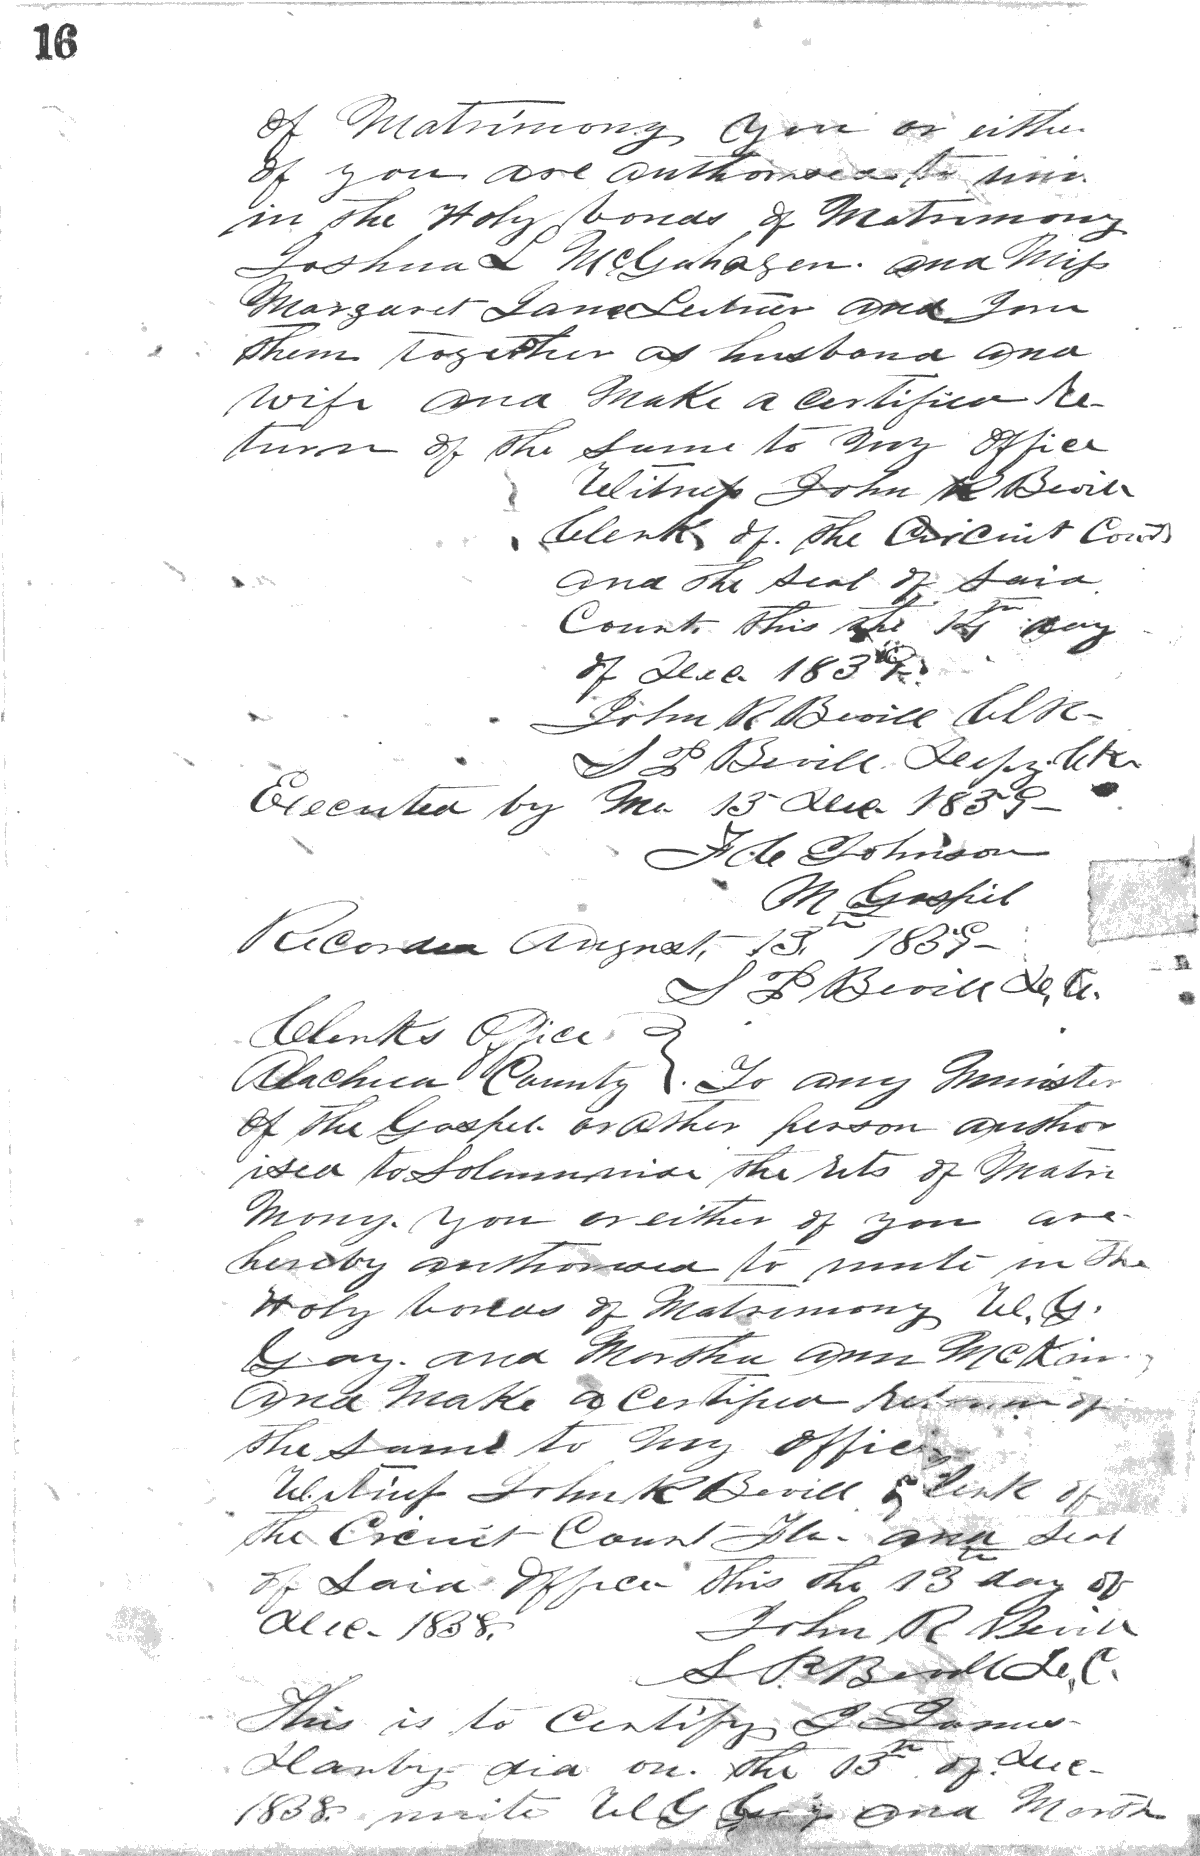 16
of Matrimony you or either
of you are authorised to
in the Holy bonds of Matrimony
Joshua L McGahagen. and Miss
Margaret Jane Leitner and Join
them together as husband and
wife and Make a certified Re-
turn of the same to my office
Witness John R Bevill
Clerk of the Circuit Court
and the seal of said
Court this the day
of Dec 183
John R Bevill Clk-
S P Bevill. Depy. Clk
Executed by Me 13 Dec 1839-
Johnson
M Gospel
Recorded August, 13th 1839-
S P Bevill D, C.
Clerks Office }
Alachua County }. To any Minister
of the Gospel or other person author
ised to Solemnise the Rits of Matri
Mony. you or either of you are
hereby authorised to unite in the
Holy bonds of Matrimony W. G.
Gay. and Marthu ann McKin
and Make a certified Return of
the same to my office
Witness John R Bevill Clerk of
the Circuit Court Fla- and seal
of said office this the 13th day of
Dec- 1838.
John R Bevill
S P. Bevill De, C.
This is to certify I James
Hanby did on. the 13th of Dec-
1838. unite W G Gay and Marth